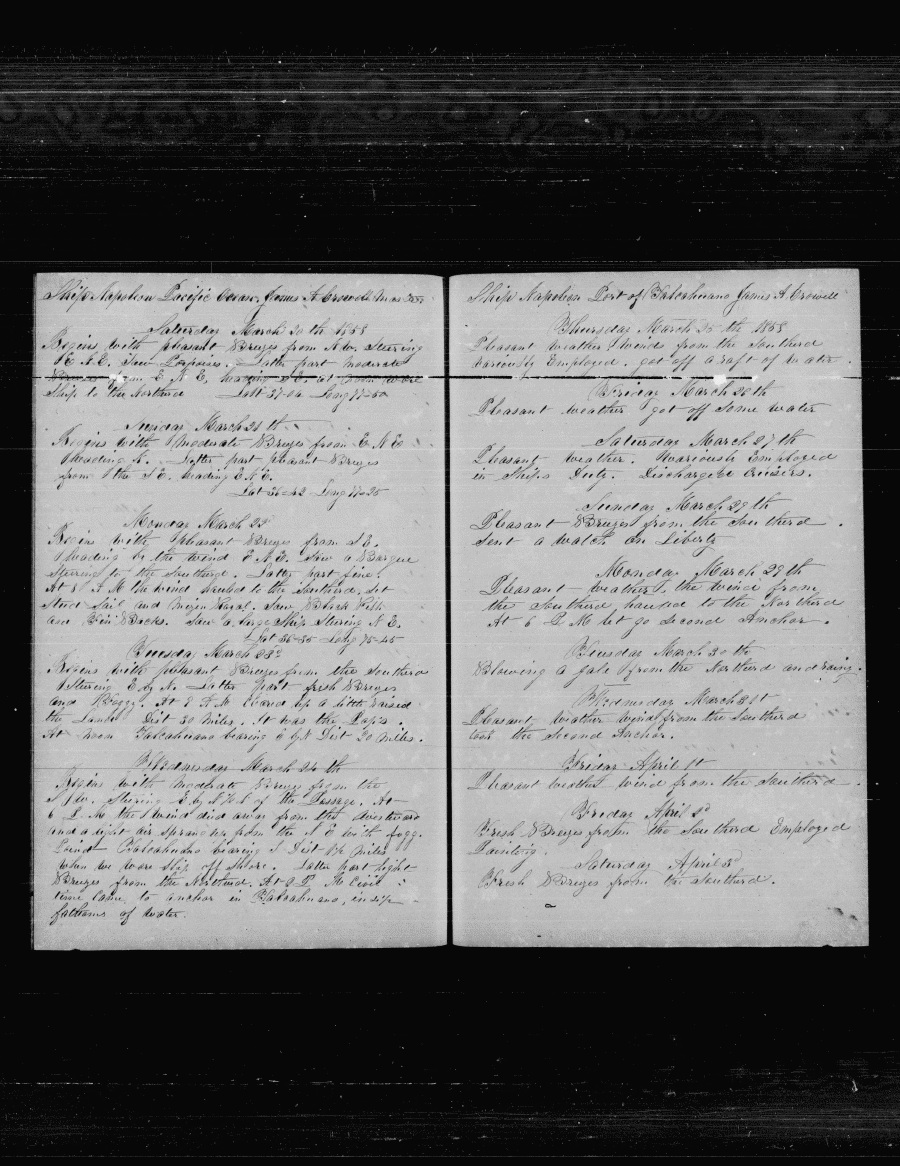 Ship Napoleon Pacific Ocean, James A Crowell Master
Saturday March 20th 1858
Begins with pleasant Breezes from N.W. Steering
E.N.E. Saw Porpoises. Latter part moderate
Breezes from E.N.E. heading S.E. at Noon wore
Ship to the Northerd Latt 37-04 Long 77-50
Sunday March 21st
Begins with Moderate Breezes from E.N.E
heading N. Latter part pleasant Breezes
from the S.E. heading E.N.E.
Lat 36-42 Long 77-25
Monday March 22d
Begins with pleasant Breezes from S.E.
heading by the wind E.N.E. Saw a Barque
Steering to the Southerd. Latter part fine.
At 8 A M the wind hauled to the Southerd. Set
Stud Sail and Royal. Saw Black Fish
and Fin Backs. Saw a large Ship Steering N.E.
Lat 36-35 Long 75-45
Tuesday March 23d
Begins with pleasant Breezes from the Southerd
Steering E by N. Latter part fresh Breezes
and Foggy. At 8 A.M cleared up a little raised
the Land Dist 30 Miles. It was the Paps.
At Noon Talcahuano bearing E by N Dist 20 Miles.
Wednesday March 24th
Begins with Moderate Breezes from the
S.W. Steering E by N for the Passage. At
6 P.M the wind died away from the
and a light air sprang up from the N E with fogg.
Point Talcahuano bearing S Dist Miles
when we wore Ship off Shore. Latter part light
Breezes from the Northerd. At 9 P.M Civil
time came to anchor in Talcahuano, in six
fathoms of water.
Ship Napoleon Port of Talcahuano James A Crowell
Thursday March 25th 1858
Pleasant weather Winds from the Southerd
Variously Employed. got off a raft of water.
Friday March 26th
Pleasant weather got off Some water
Saturday March 27th
Pleasant weather. Variously Employed
in Ships Duty. Discharged Cruisers.
Sunday March 29th
Pleasant Breezes from the Southerd.
Sent a watch on Liberty
Monday March 29th
Pleasant weather, the wind from
the Southerd hauled to the Northerd
At 6 P M let go Second Anchor.
Tuesday March 30th
Blowing a gale from the Northerd and rainy.
Wednesday March 31st
Pleasant weather wind from the Southerd
took the Second Anchor.
Friday April 1st
Pleasant weather wind from the Southerd.
Friday April 2d
Fresh Breezes from the Southerd Employed
Painting.
Saturday April 3d
Fresh Breezes from the Southerd.